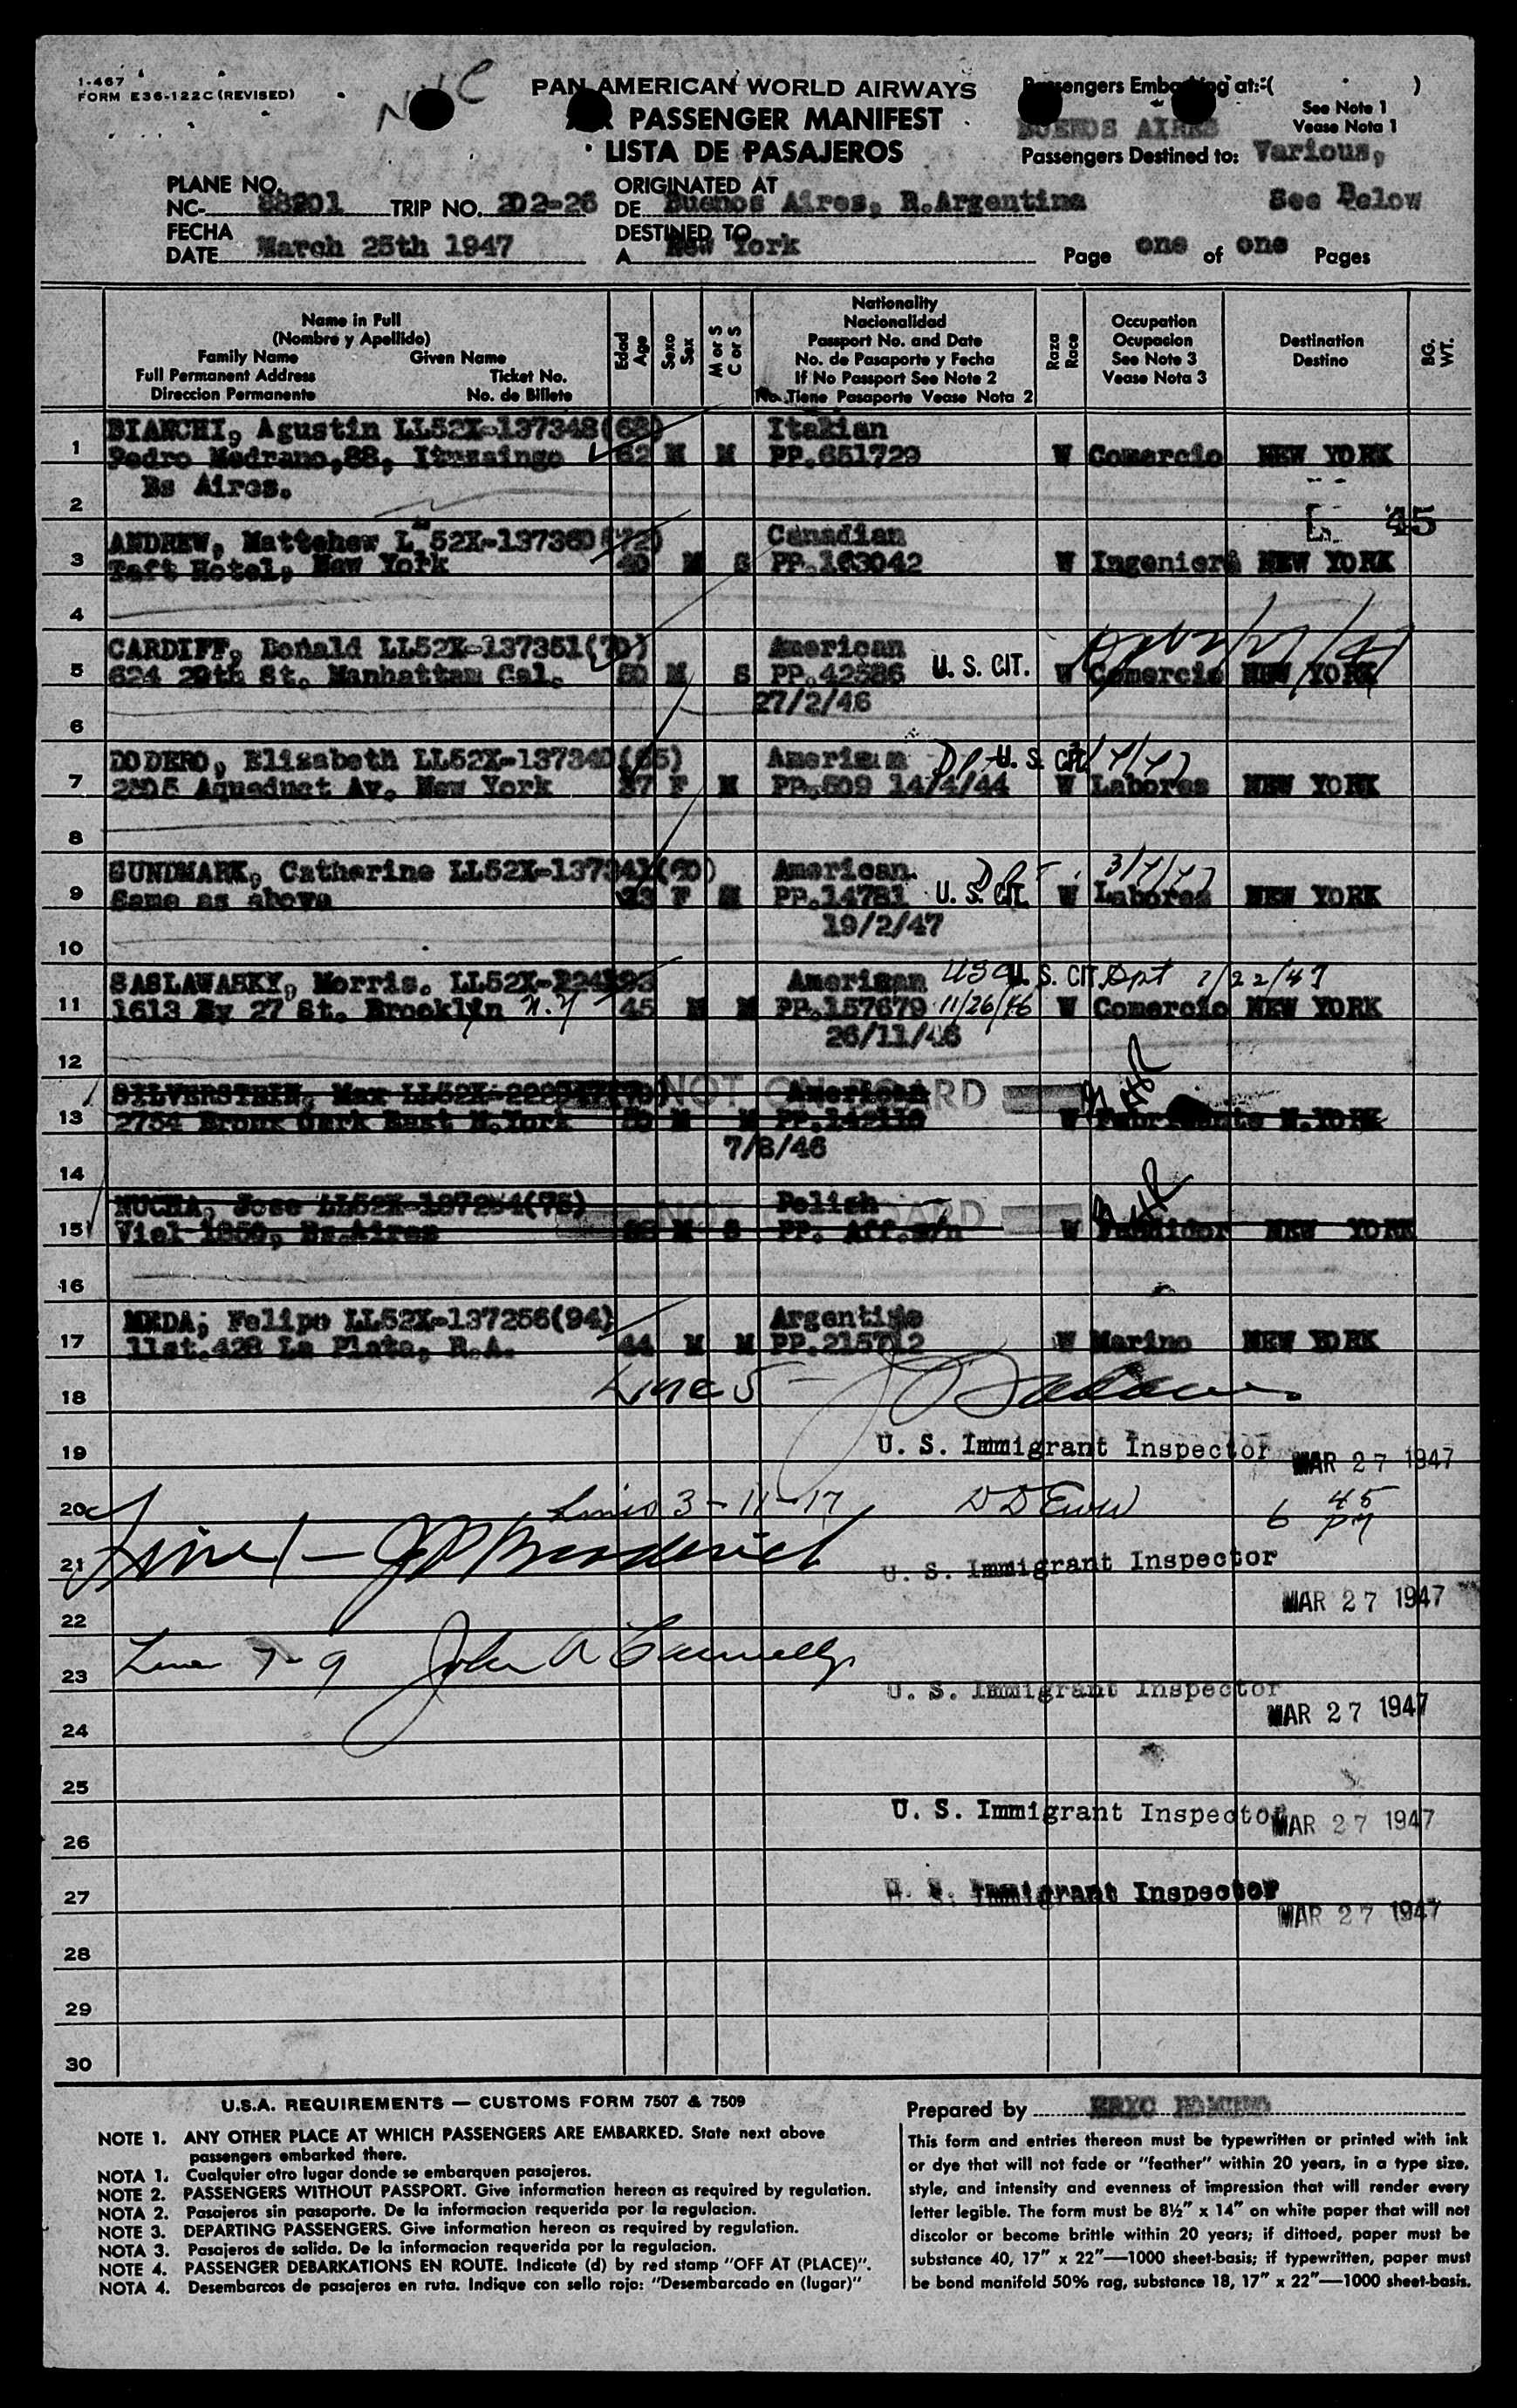 1-467
FORM E36-122C (REVISED)
NYC
PAN AMERICAN WORLD AIRWAYS
PASSENGER MANIFEST
LISTA DE PASAJEROS
Passengers Embarking at:-( )
See Note 1
Vease Nota 1
BUENOS AIRES
Passengers Destined to: Various,
See Below
PLANE NO.
NC- 88201 TRIP NO. 202-26
ORIGINATED AT
DE Buenos Aires, R.Argentina
FECHA
DATE March 25th 1947
DESTINED TO
A New York
Page one of one Pages
Name in Full
(Nombre y Apellido)
Family Name Given Name
Full Permanent Address Ticket No.
Direccion Permanente No. de Billete
Edad Age
Sexo Sex
M or S C or S
Nationality
Nacionalidad
Passport No. and Date
No. de Pasaporte y Fecha
If No Passport See Note 2
No Tiene Pasaporte Vease Nota 2
Raza Race
Occupation
Ocupacion
See Note 3
Vease Nota 3
Destination
Destino
BG. WT.
BIANCHI, Agustin LL52X-137348(68) Italian
1 Pedro Medrano,88, Ituzaingo 62 M M PP.651729 W Comercio NEW YORK
Bs Aires.
2
45
ANDREW, Mattehew L 52X-137360(72) Canadian
3 Taft Hotel, New York 40 M S PP.163042 W Ingeniero NEW YORK
4
CARDIFF, Donald LL52X-137351(70) American
5 624 29th St. Manhattam Cal. 50 M S PP.42586 U. S. CIT. W Comercio NEW YORK
27/2/46
6
DODERO, Elizabeth LL52X-137340(65) American U. S. CIT.
7 Aqueduct Av. New York 37 F M PP.609 14/4/44 W Labores NEW YORK
8
SUNDMARK, Catherine LL52X-137341(60) American. 3/7/47
9 Same as above F M PP.14781 U. S. CIT. W Labores NEW YORK
19/2/47
10
SASLAWASKY, Morris. LL52X- American USC U. S. CIT. Dpt 1/22/47
11 1613 Ey 27 St. Brooklyn N.Y 45 M M PP.157679 11/26/46 W Comercio NEW YORK
26/11/46
12
SILVERSTEIN, Max American NOT ON BOARD
13 2754 Bronx East N.York M M W Fabricante N.YORK
7/8/46
14
Jose LL52X-137254(75) Polish NOT ON BOARD
15 Viel Bs.Aires M S PP. Aff.s/n W NEW YORK
16
MEDA; Felipe LL52X-137256(94) Argentine
17 11st.428 La Plata, R.A. 44 M M PP.215712 W Marino NEW YORK
Line 5 -
18
19 U. S. Immigrant Inspector MAR 27 1947
20 Lines 3-11-17 6 45 PM
21 Line 1 - U. S. Immigrant Inspector
MAR 27 1947
22
23 Line 7-9 John A
U. S. Immigrant Inspector
MAR 27 1947
24
25
U. S. Immigrant Inspector MAR 27 1947
26
27 U. S. Immigrant Inspector
MAR 27 1947
28
29
30
U.S.A. REQUIREMENTS — CUSTOMS FORM 7507 & 7509
NOTE 1. ANY OTHER PLACE AT WHICH PASSENGERS ARE EMBARKED. State next above
passengers embarked there.
NOTA 1. Cualquier otro lugar donde se embarquen pasajeros.
NOTE 2. PASSENGERS WITHOUT PASSPORT. Give information hereon as required by regulation.
NOTA 2. Pasajeros sin pasaporte. De la informacion requerida por la regulacion.
NOTE 3. DEPARTING PASSENGERS. Give information hereon as required by regulation.
NOTA 3. Pasajeros de salida. De la informacion requerida por la regulacion.
NOTE 4. PASSENGER DEBARKATIONS EN ROUTE. Indicate (d) by red stamp "OFF AT (PLACE)".
NOTA 4. Desembarcos de pasajeros en ruta. Indique con sello rojo: "Desembarcado en (lugar)".
Prepared by ERIC
This form and entries thereon must be typewritten or printed with ink
or dye that will not fade or "feather" within 20 years, in a type size,
style, and intensity and evenness of impression that will render every
letter legible. The form must be 8½" x 14" on white paper that will not
discolor or become brittle within 20 years; if dittoed, paper must be
substance 40, 17" x 22"—1000 sheet-basis; if typewritten, paper must
be bond manifold 50% rag, substance 18, 17" x 22"—1000 sheet-basis.